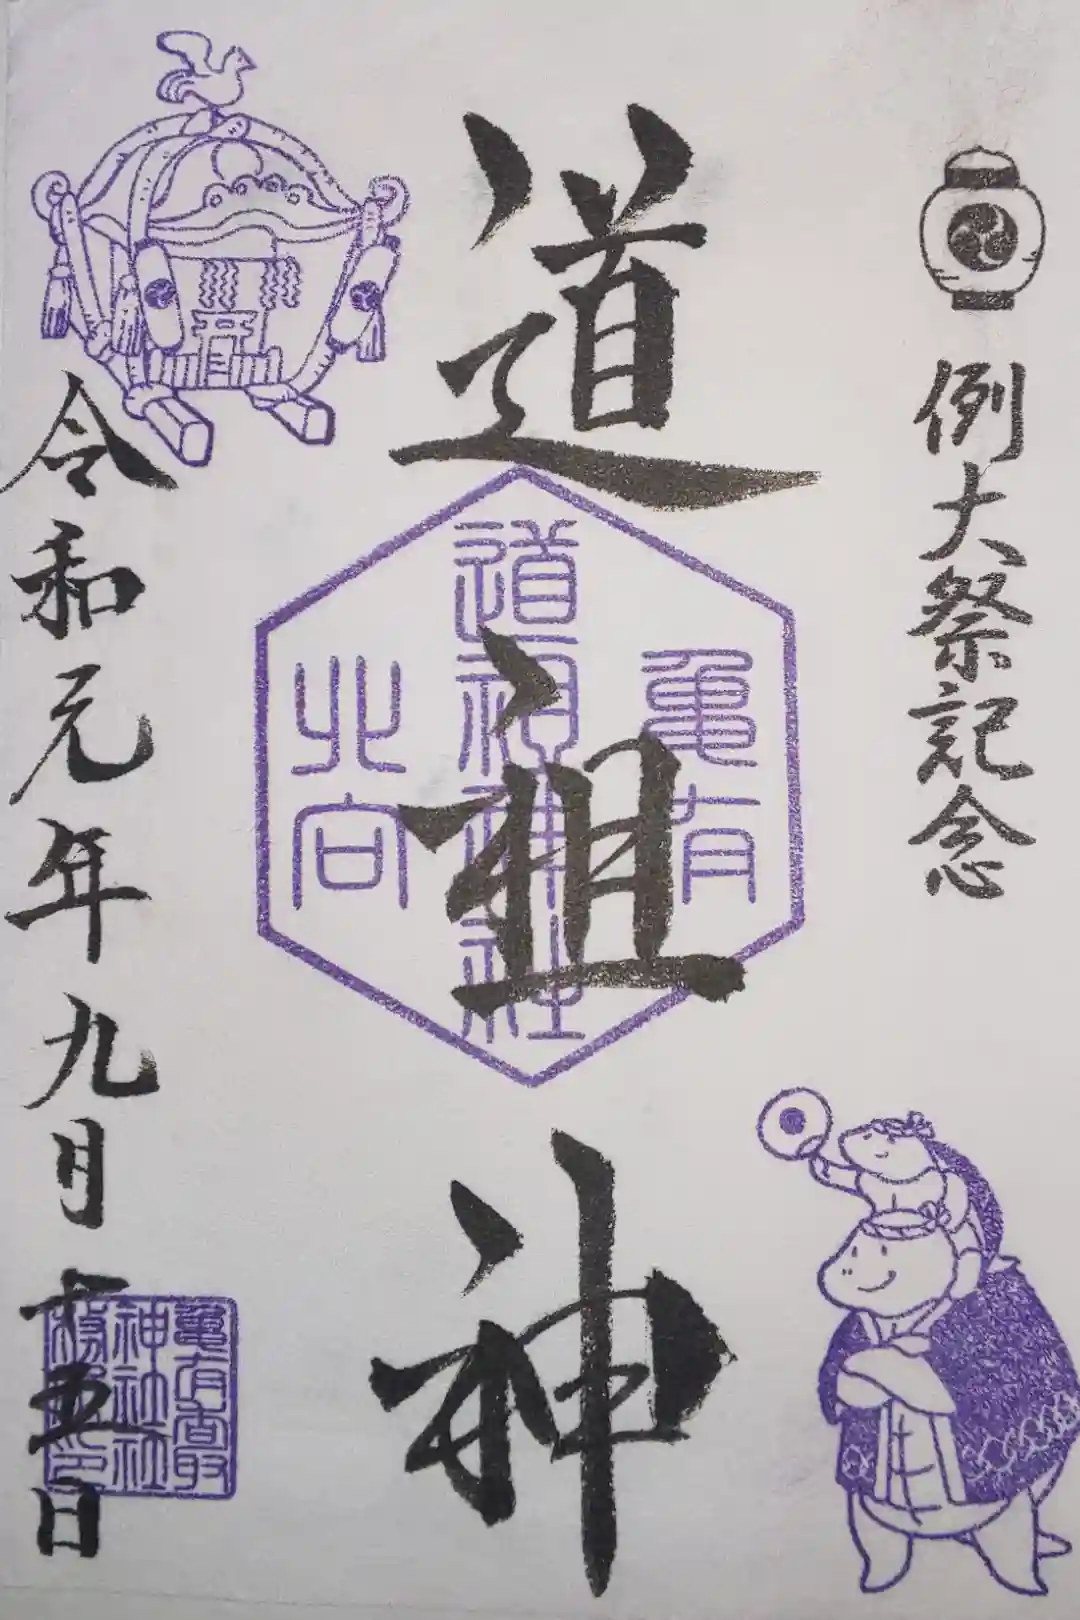 例大祭記念
道祖神
亀有
道祖神社
北向
令和元年九月十五日
亀有香取
神社社